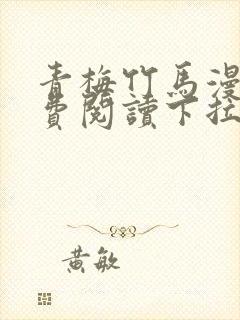 青梅竹馬漫
費閱讀下拉
黃敏